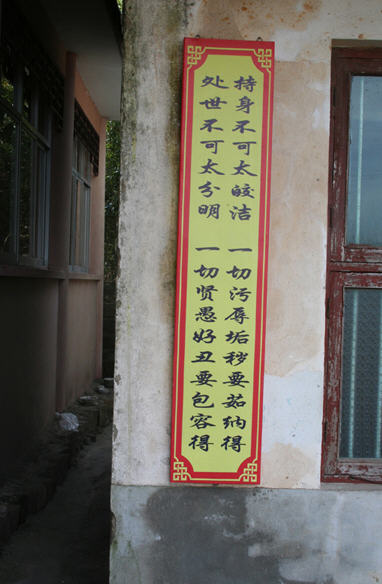 持身不可太皎洁 一切污辱垢秽要茹纳得
处世不可太分明 一切贤愚好丑要包容得